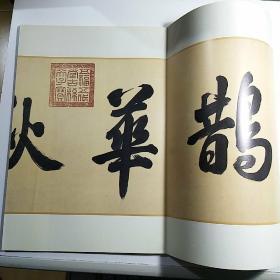 鵲華秋